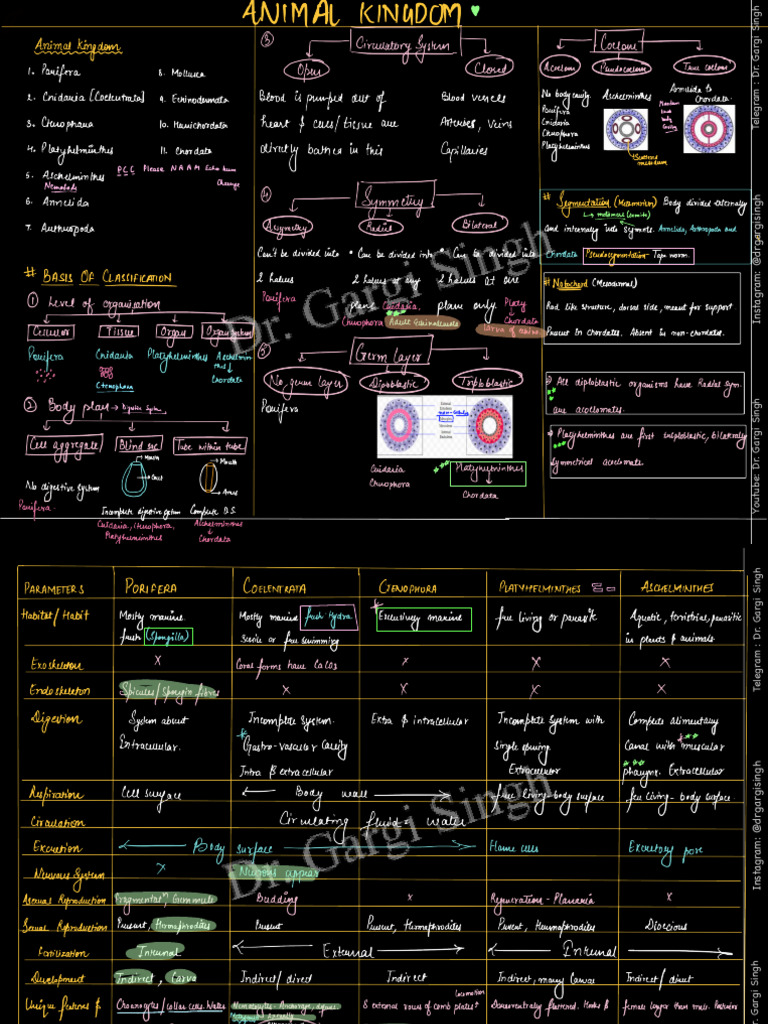 ANIMAL KINGDOM
Animal Kingdom
1. Porifera
2. Cnidaria [Coelentrata]
3. Ctenophora
4. Platyhelminthes
5. Aschelminthes
Nematoda
6. Annelida
7. Arthropoda
8. Mollusca
9. Echinodermata
10. Hemichordata
11. Chordata
PCC Please NAAM
# BASIS OF CLASSIFICATION
① Level of organisation
Cellular Tissue Organ Organ System
Porifera Cnidaria Platyhelminthes Aschelminthes
Ctenophora Chordata
② Body plan → Digestive System
Cell aggregate Blind sac Tube within tube
Mouth Mouth
Gut
Anus
No digestive system Incomplete digestive system Complete D.S.
Porifera Cnidaria, Ctenophora, Aschelminthes
Platyhelminthes Chordata
③ Circulatory System
Open Closed
Blood is pumped out of Blood vessels
heart & cells/tissue are Arteries, Veins
directly bathed in this Capillaries
④ Symmetry
Asymmetry Radial Bilateral
Can't be divided into • Can be divided into • Can be divided into
2 halves 2 halves at any 2 halves at one
Porifera plane Cnidaria plane only Platy
Ctenophora Adult Echinodermata Chordata
⑤ Germ layer
No germ layer Diploblastic Triploblastic
Porifera
Cnidaria Platyhelminthes
Ctenophora Chordata
Coelom
Acoelom Pseudocoelom True coelom
No body cavity Aschelminthes Annelida to
Porifera Chordata
Cnidaria
Ctenophora
Platyhelminthes
# Segmentation (Metamerism) Body divided externally
and internally into segments. Annelida, Arthropoda and
Chordata Pseudosegmentation Tape worm.
# Notochord (Mesodermal)
Rod like structure, dorsal side, meant for support
Present in chordates. Absent in non-chordates.
All diploblastic organisms have Radial sym.
are acoelomates.
Platyhelminthes are first triploblastic, bilaterally
symmetrical acoelomate.
Dr. Gargi Singh
Telegram : Dr. Gargi Singh
Instagram: @drgargisingh
Youtube: Dr. Gargi Singh
PARAMETERS PORIFERA COELENTRATA CTENOPHORA PLATYHELMINTHES ASCHELMINTHES
Habitat/Habit Mostly marine Mostly marine fresh-Hydra Exclusively marine free living or parasite Aquatic, terrestrial, parasitic
fresh (Spongilla) Sessile or free swimming in plants & animals
Exoskeleton x Coral forms have CaCO3 x x x
Endoskeleton Spicules/spongin fibres x x x x
Digestion System absent Incomplete System. Extra & intracellular Incomplete System with Complete alimentary
Extracellular. Gastro-vascular Cavity single opening Canal with muscular
Intra & extracellular Extracellular pharynx. Extracellular
Respiration Cell surface ← Body wall → free living-body surface free living-body surface.
Circulation Circulating fluid = water
Excretion ← Body surface → Flame cells Excretory pore
Nervous System x Nervous appear
Asexual Reproduction Fragmentatn, Gemmule Budding x Regeneration - Planaria x
Sexual Reproduction Present, Hermaphrodites Present Present, Hermaphrodites Present, Hermaphrodites Dioecious
Fertilization Internal ← External → ← Internal →
Development Indirect, Larva Indirect/direct Indirect Indirect, many larvae Indirect/direct
Unique features & Choanocytes/collar cells, Water 8 external rows of comb plates Dorsoventrally flattened. Hooks & female longer than male. Posterior
Dr. Gargi Singh
Telegram : Dr. Gargi Singh
Instagram: @drgargisingh